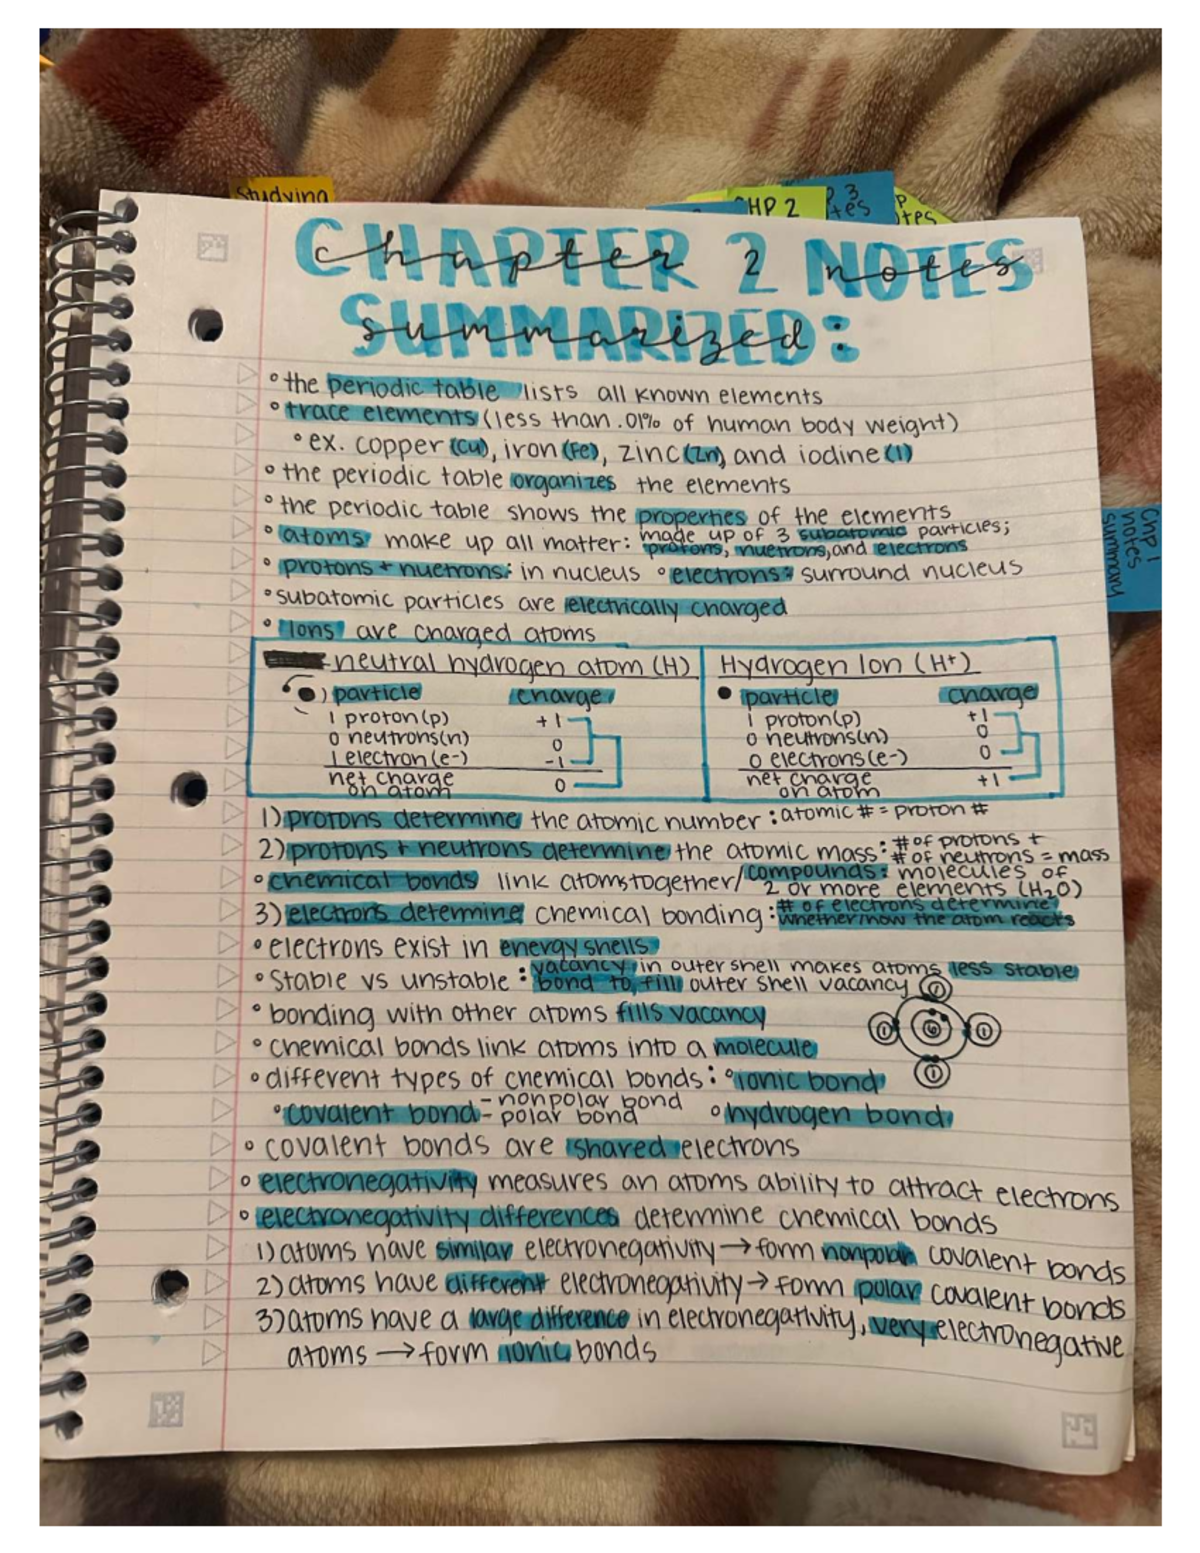 Studying
CHP 2
P 3
tes
P
otes
CHAPTER 2 NOTES
chapter 2 notes
SUMMARIZED:
summarized:
Chp 1
notes
summary
°the periodic table lists all known elements
°trace elements (less than .01% of human body weight)
°ex. copper (Cu), iron (Fe), zinc (Zn) and iodine (I)
°the periodic table organizes the elements
°the periodic table shows the properties of the elements
°atoms make up all matter: made up of 3 subatomic particles;
protons, nuetrons, and electrons
°protons + nuetrons: in nucleus °electrons: surround nucleus
°subatomic particles are electrically charged
°Ions are charged atoms
neutral hydrogen atom (H)
particle charge
1 proton(p) +1
0 neutrons(n) 0
1 electron(e-) -1
net charge
on atom 0
Hydrogen Ion (H+)
particle charge
1 proton(p) +1
0 neutrons(n) 0
0 electrons(e-) 0
net charge
on atom +1
1) protons determine the atomic number: atomic # = proton #
2) protons + neutrons determine the atomic mass: # of protons +
# of neutrons = mass
°chemical bonds link atoms together/compounds: molecules of
2 or more elements (H2O)
3) electrons determine chemical bonding: # of electrons determine
whether/how the atom reacts
°electrons exist in energy shells
°Stable vs unstable: vacancy in outer shell makes atoms less stable
bond to fill outer shell vacancy
1
1 6 1
1
°bonding with other atoms fills vacancy
°chemical bonds link atoms into a molecule
°different types of chemical bonds: °ionic bond
°covalent bond -nonpolar bond
-polar bond °hydrogen bond
°covalent bonds are shared electrons
°electronegativity measures an atoms ability to attract electrons
°electronegativity differences determine chemical bonds
1) atoms have similar electronegativity → form nonpolar covalent bonds
2) atoms have different electronegativity → form polar covalent bonds
3) atoms have a large difference in electronegativity, very electronegative
atoms → form ionic bonds